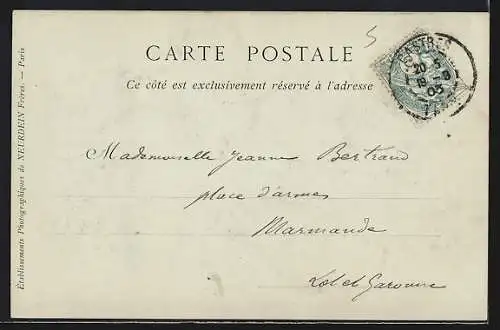 CARTE POSTALE
Ce côté est exclusivement réservé à l'adresse
CASTRES
Mademoiselle Jeanne Bertrand
place d'armes
Marmande
Lot et Garonne
Établissements Photographiques de NEURDEIN Frères. — Paris